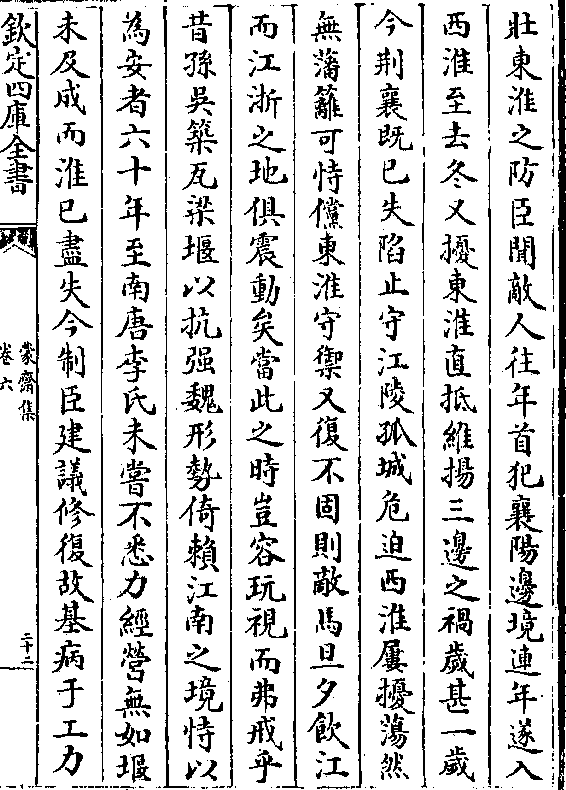 壯東淮之防臣聞敵人往年首犯襄陽邊境連年遂入
西淮至去冬又擾東淮直抵維揚三邊之禍歲甚一歲
今荆襄既已失陷止守江陵孤城危迫西淮屢擾蕩然
無藩籬可恃儻東淮守禦又復不固則敵馬旦夕飲江
而江浙之地俱震動矣當此之時豈容玩視而弗戒乎
昔孫吳築瓦梁堰以抗强魏形勢倚賴江南之境恃以
為安者六十年至南唐李氏未嘗不悉力經營無如堰
未及成而淮已盡失今制臣建議修復故基病于工力
欽定四庫全書
蒙齋集
卷六
二十二